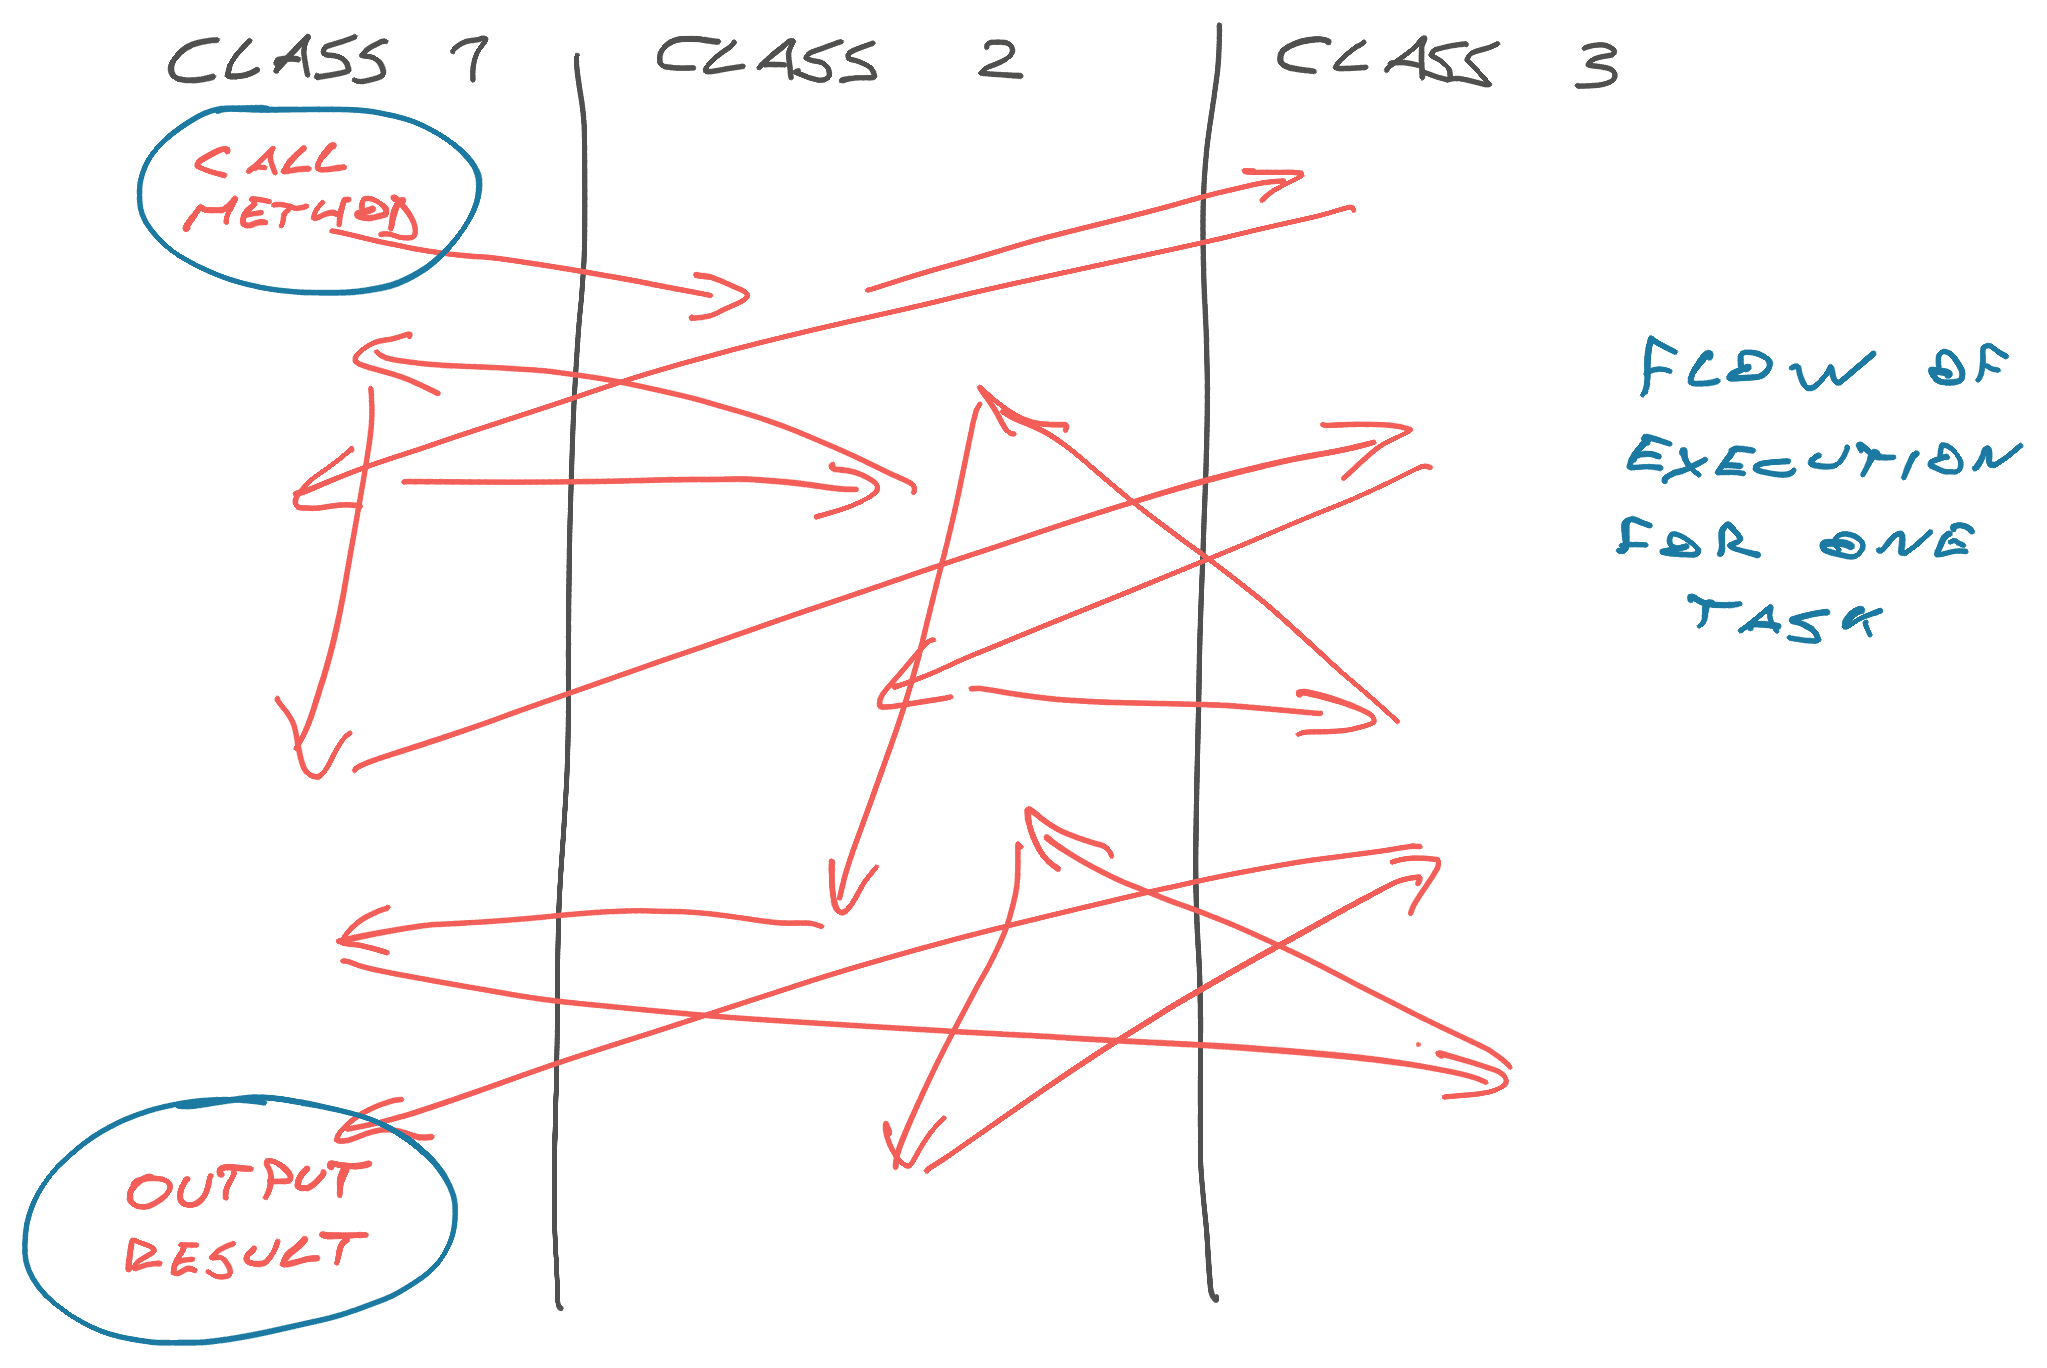 CLASS 1
CLASS 2
CLASS 3
CALL
METHOD
FLOW OF
EXECUTION
FOR ONE
TASK
OUTPUT
RESULT